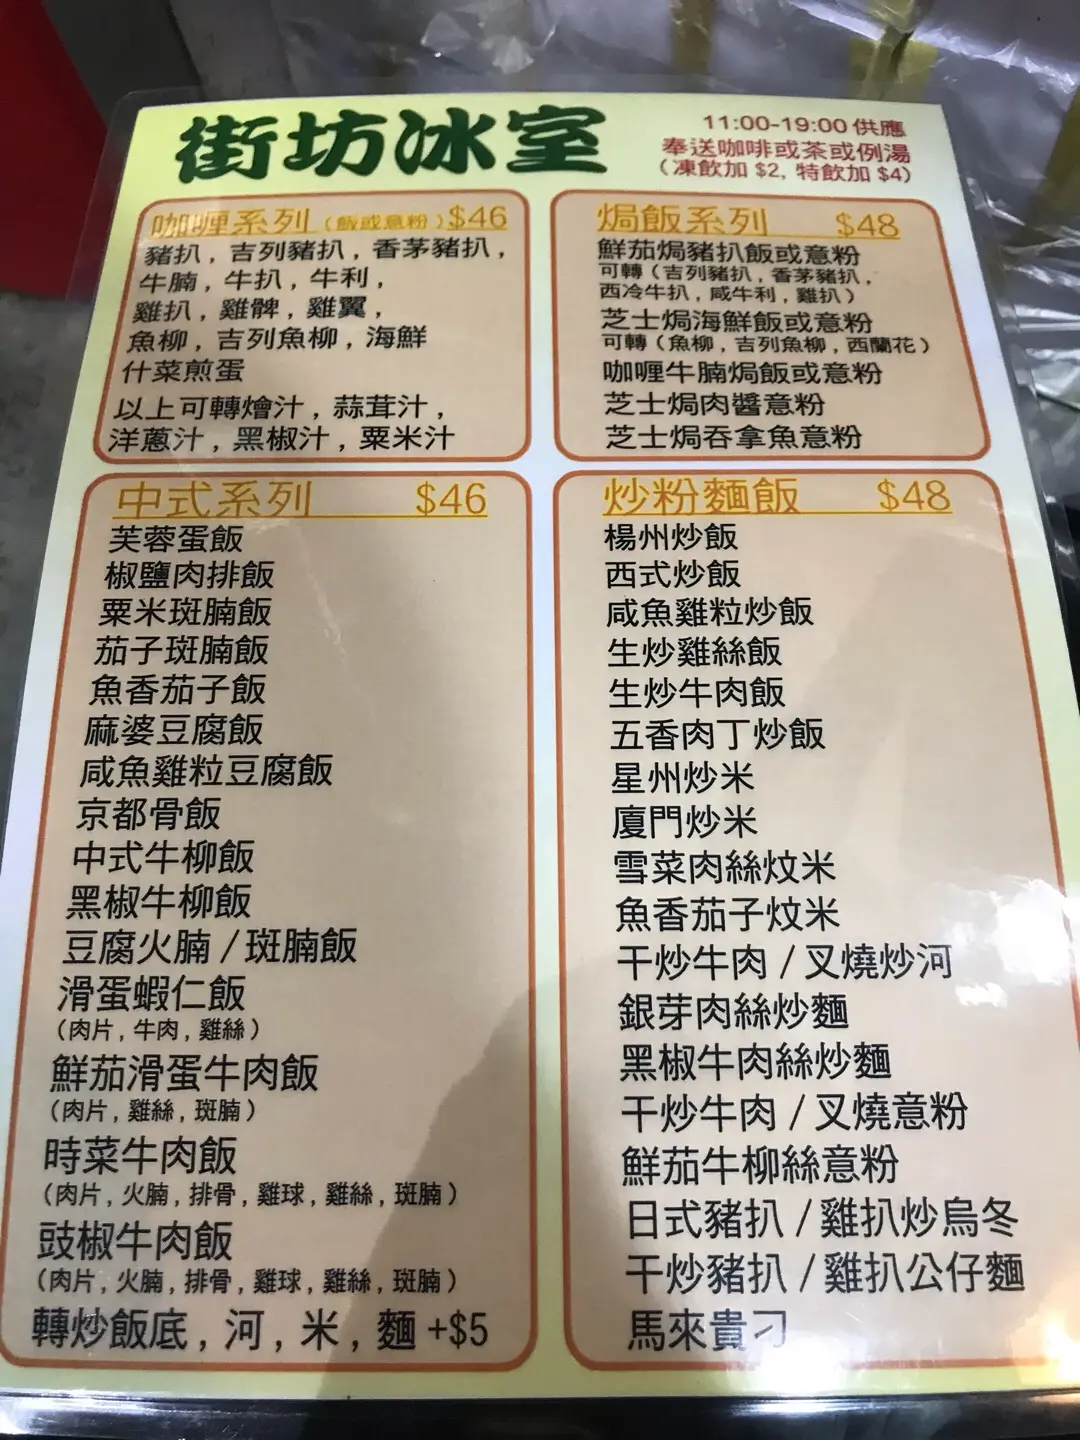 街坊冰室
11:00-19:00 供應
奉送咖啡或茶或例湯
(凍飲加 $2, 特飲加 $4)
咖喱系列 (飯或意粉) $46
豬扒, 吉列豬扒, 香茅豬扒,
牛腩, 牛扒, 牛利,
雞扒, 雞髀, 雞翼,
魚柳, 吉列魚柳, 海鮮
什菜煎蛋
以上可轉燴汁, 蒜茸汁,
洋蔥汁, 黑椒汁, 粟米汁
焗飯系列 $48
鮮茄焗豬扒飯或意粉
可轉 (吉列豬扒, 香茅豬扒,
西冷牛扒, 咸牛利, 雞扒)
芝士焗海鮮飯或意粉
可轉 (魚柳, 吉列魚柳, 西蘭花)
咖喱牛腩焗飯或意粉
芝士焗肉醬意粉
芝士焗吞拿魚意粉
中式系列 $46
芙蓉蛋飯
椒鹽肉排飯
粟米斑腩飯
茄子斑腩飯
魚香茄子飯
麻婆豆腐飯
咸魚雞粒豆腐飯
京都骨飯
中式牛柳飯
黑椒牛柳飯
豆腐火腩 / 斑腩飯
滑蛋蝦仁飯
(肉片, 牛肉, 雞絲)
鮮茄滑蛋牛肉飯
(肉片, 雞絲, 斑腩)
時菜牛肉飯
(肉片, 火腩, 排骨, 雞球, 雞絲, 斑腩)
豉椒牛肉飯
(肉片, 火腩, 排骨, 雞球, 雞絲, 斑腩)
轉炒飯底, 河, 米, 麵 +$5
炒粉麵飯 $48
楊州炒飯
西式炒飯
咸魚雞粒炒飯
生炒雞絲飯
生炒牛肉飯
五香肉丁炒飯
星州炒米
廈門炒米
雪菜肉絲炆米
魚香茄子炆米
干炒牛肉 / 叉燒炒河
銀芽肉絲炒麵
黑椒牛肉絲炒麵
干炒牛肉 / 叉燒意粉
鮮茄牛柳絲意粉
日式豬扒 / 雞扒炒烏冬
干炒豬扒 / 雞扒公仔麵
馬來貴刁